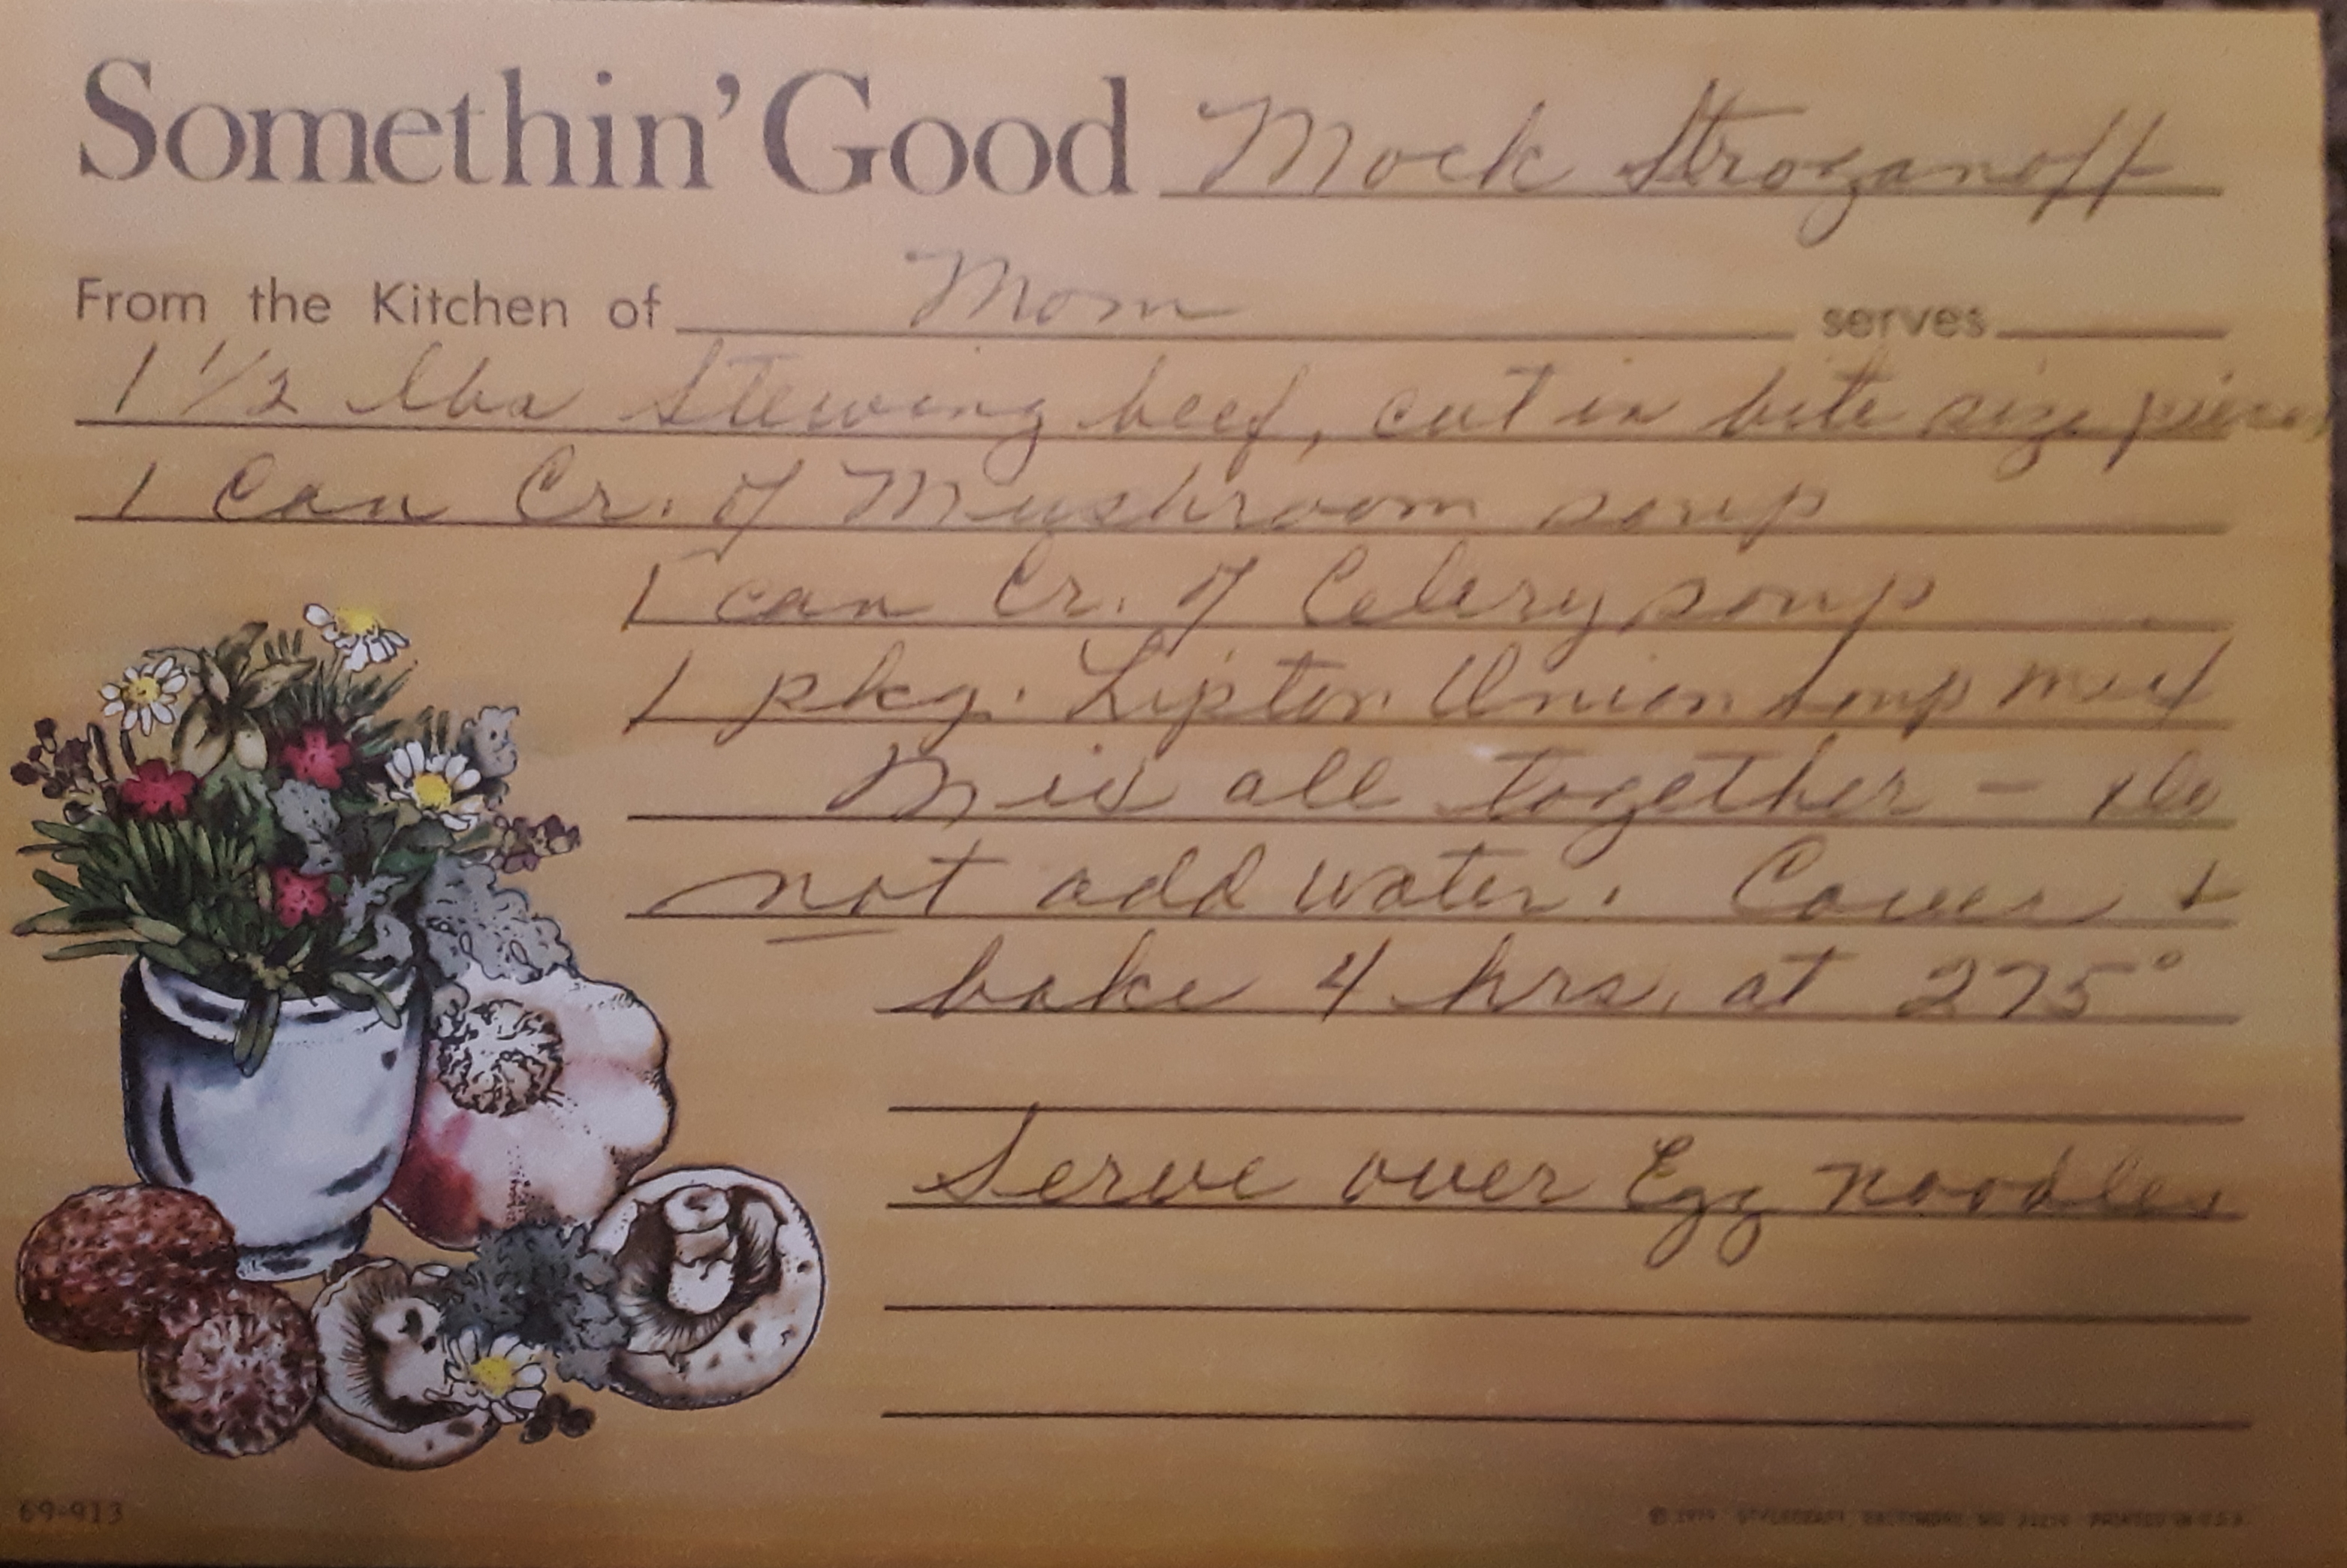 Somethin' Good Mock Stroganoff
From the Kitchen of Mom serves
1 1/2 lbs Stewing beef, cut in bite size pieces
1 Can Cr. of Mushroom soup
1 can Cr. of Celery soup
1 pkg. Lipton Onion Soup mix
Mix all together - do
not add water. Cover &
bake 4 hrs. at 275°
Serve over Egg noodles
69-913
PRINTED IN U.S.A.